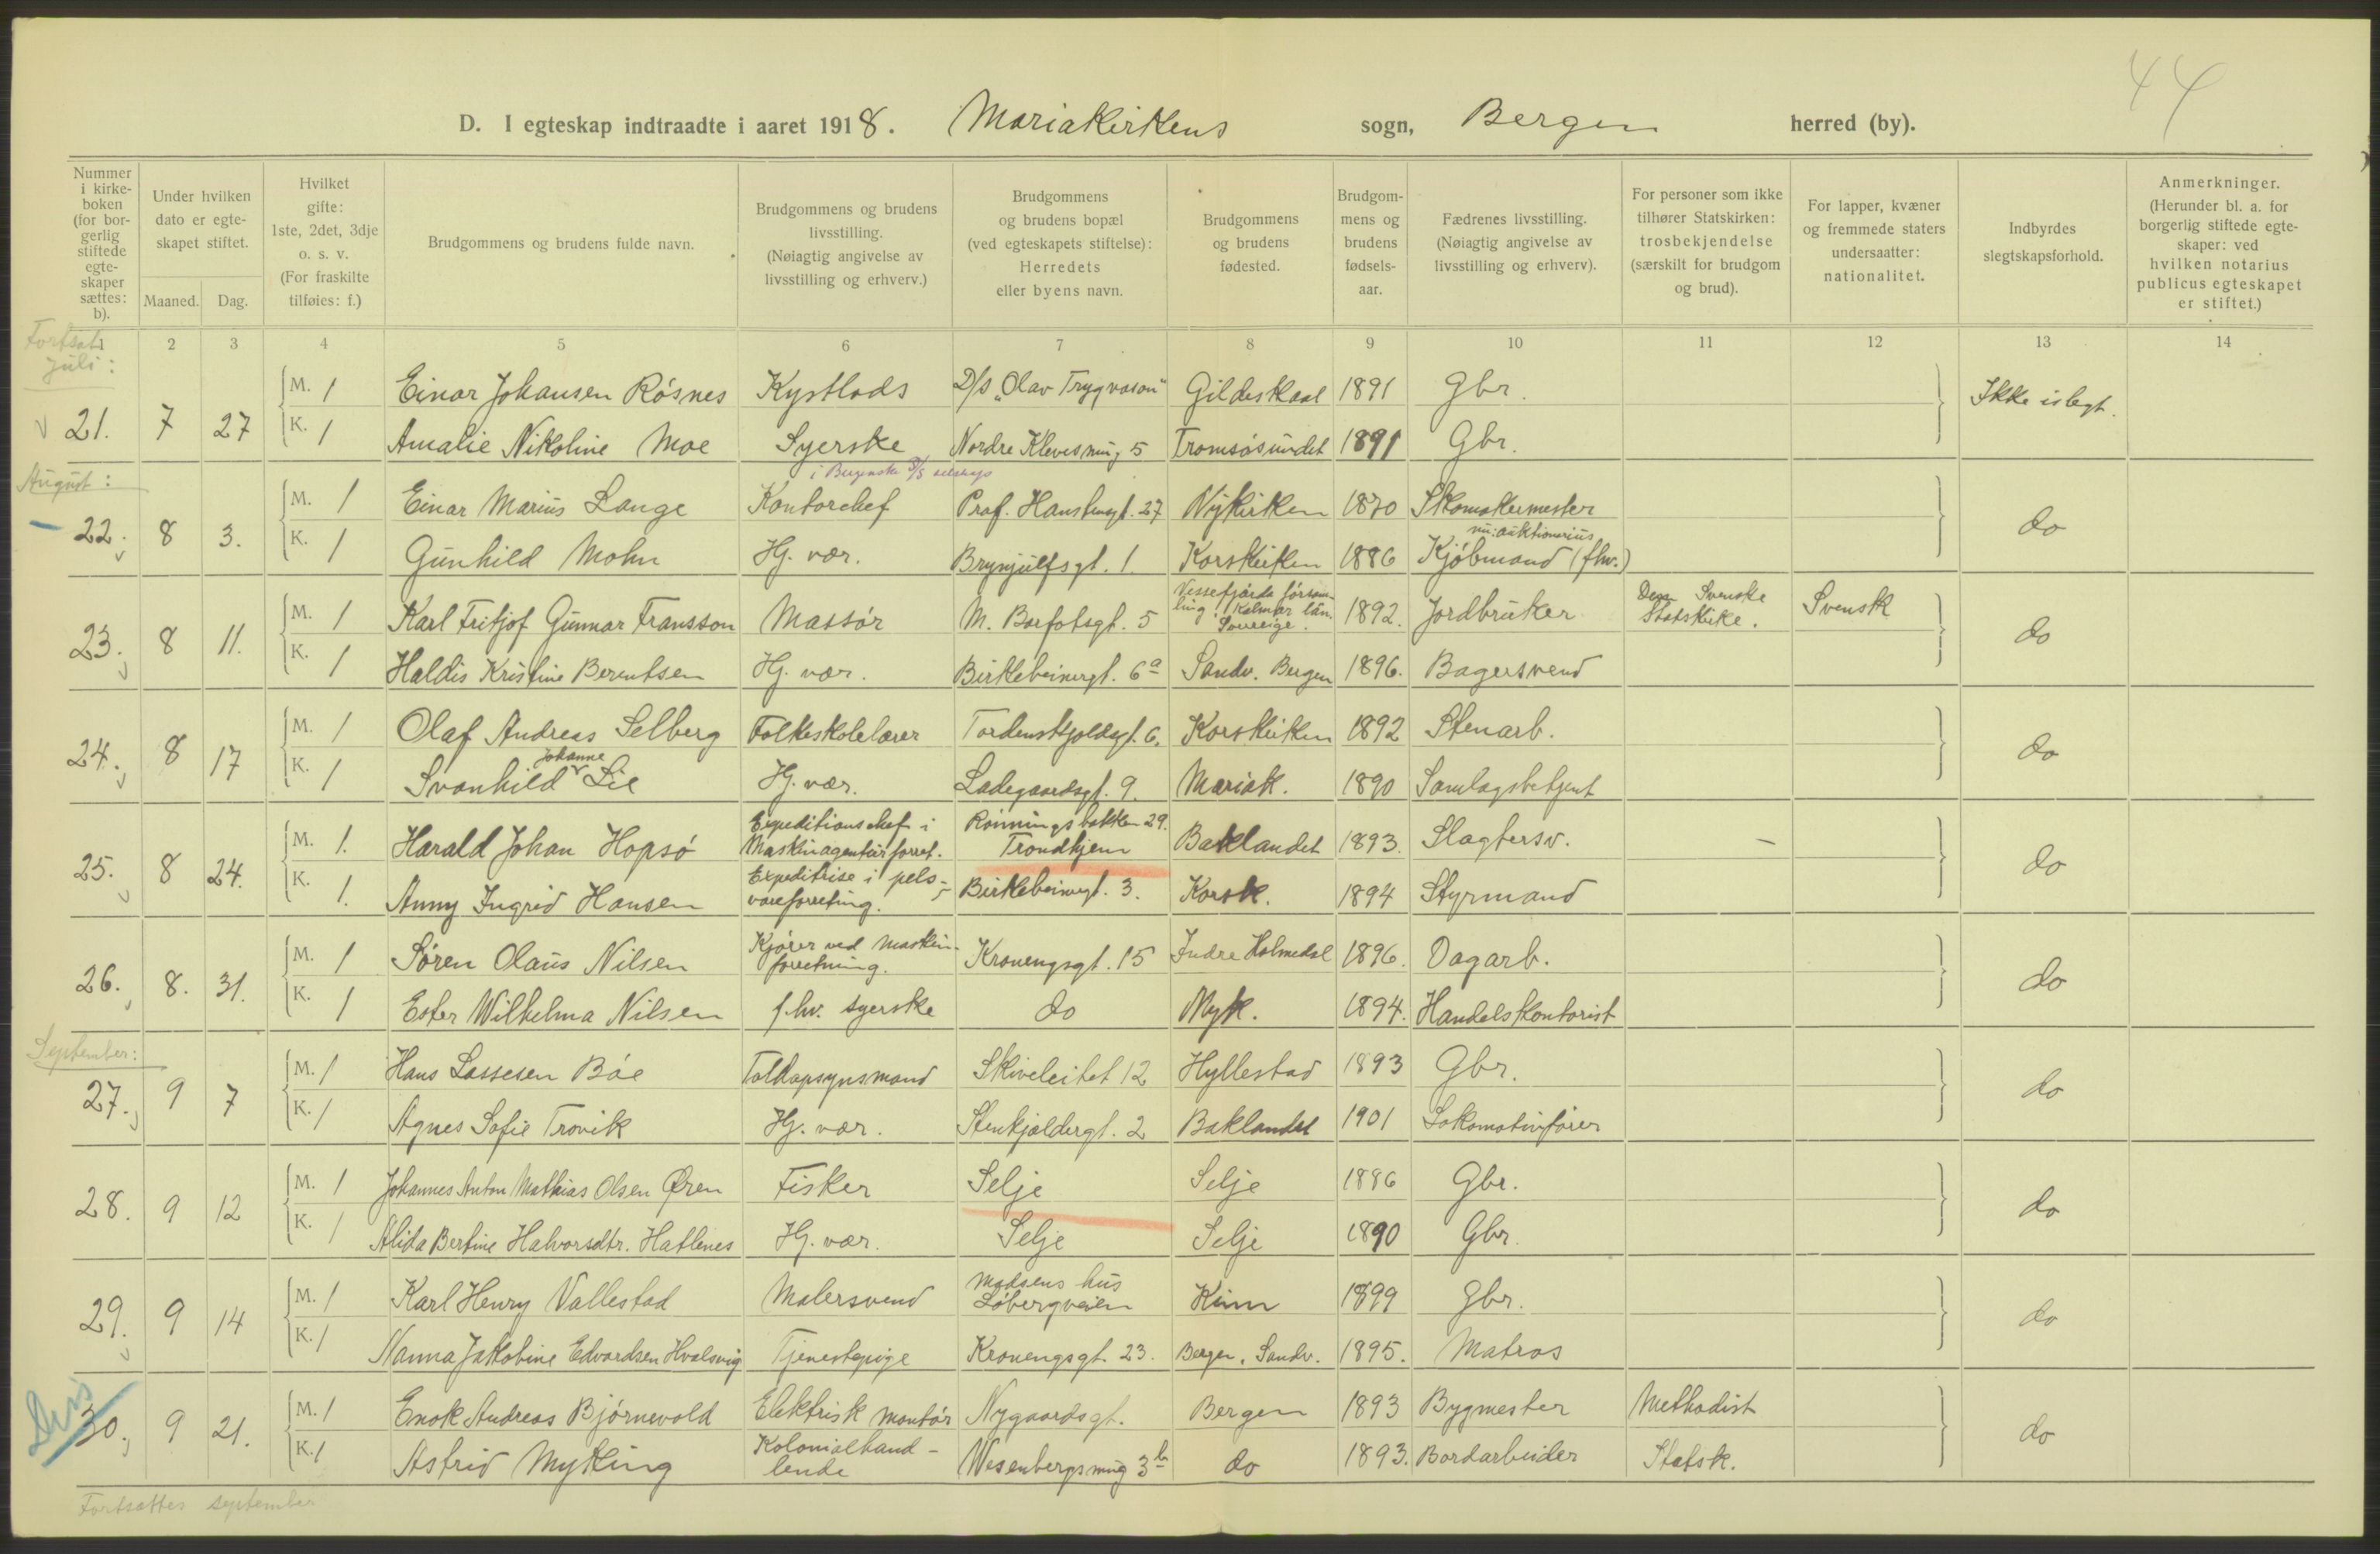 44
D. I egteskap indtraadte i aaret 1918. Mariakirkens sogn, Bergen herred (by).
Nummer i kirke- boken (for bor- gerlig stiftede egte- skaper sættes: b).
Under hvilken dato er egte- skapet stiftet.
Maaned. Dag.
Hvilket gifte: 1ste, 2det, 3dje o. s. v. (For fraskilte tilføies: f.)
Brudgommens og brudens fulde navn.
Brudgommens og brudens livsstilling. (Nøiagtig angivelse av livsstilling og erhverv.)
Brudgommens og brudens bopæl (ved egteskapets stiftelse): Herredets eller byens navn.
Brudgommens og brudens fødested.
Brudgom- mens og brudens fødsels- aar.
Fædrenes livsstilling. (Nøiagtig angivelse av livsstilling og erhverv).
For personer som ikke tilhører Statskirken: trosbekjendelse (særskilt for brudgom og brud).
For lapper, kvæner og fremmede staters undersaatter: nationalitet.
Indbyrdes slegtskapsforhold.
Anmerkninger. (Herunder bl. a. for borgerlig stiftede egte- skaper: ved hvilken notarius publicus egteskapet er stiftet.)
1 2 3 4 5 6 7 8 9 10 11 12 13 14
Fortsat juli:
21. 7 27 M. 1 Einar Johansen Røsnes Kystlods D/s "Olav Trygvason" Gildeskaal 1891 Gbr. Ikke i slegt.
K. 1 Amalie Nikoline Moe Syerske Nordre Klevesmug 5 Tromsøsundet 1891 Gbr.
August:
i Bergenske D/S selskap
22. 8 3. M. 1 Einar Marius Lange Kontorchef Prof. Hansteensgt. 27 Nykirken 1870 Skomakermester do
nu: auktionarius
K. 1 Gunhild Mohn Hj. vær. Brynjulfsgt. 1. Korskirken 1886 Kjøbmand (fhv.)
23. 8 11. M. 1 Karl Fritjof Gunnar Fransson Massør M. Barfotsgt. 5 Vissefjärda församling, Kalmar län Sverige. 1892. Jordbruker Den Svenske Statskirke. Svensk do
K. 1 Haldis Kristine Berentsen Hj. vær. Birkebeinergt. 6a Sandv. Bergen 1896. Bagersvend
24. 8 17 M. 1 Olaf Andreas Selberg Folkeskolelærer Tordenskjoldsgt. 6. Korskirken 1892 Stenarb. do
K. 1 Svanhild Johanne Lie Hj. vær. Ladegaardsgt. 9. Mariak. 1890 Samlagsbetjent
25. 8 24. M. 1. Harald Johan Hopsø Expeditionschef i Maskinagenturforret. Rønningsbakken 29. Trondhjem Baklandet 1893. Slagtersv. – do
K. 1. Anny Ingrid Hansen Expeditrise i pels- vareforretning. Birkebeinergt. 3. Korsk. 1894 Styrmand
26. 8. 31. M. 1 Søren Olaus Nilsen Kjører ved maskin- forretning. Kronengsgt. 15 Indre Holmedal 1896. Dagarb. do
K. 1 Ester Wilhelma Nilsen f.hv. syerske do Nyk. 1894. Handelskontorist
September:
27. 9 7 M. 1 Hans Lassesen Bøe Toldopsynsmand Skiveleitet 12 Hyllestad 1893 Gbr. do
K. 1 Agnes Sofie Trovik Hj. vær. Stenkjeldergt. 2 Baklandet 1901 Lokomotivfører
28. 9 12 M. 1 Johannes Anton Mathias Olsen Øren Fisker Selje Selje 1886 Gbr. do
K. 1 Alida Bertine Halvorsdtr. Hatlenes Hj. vær. Selje Selje 1890 Gbr.
29. 9 14 M. 1 Karl Henry Vallestad Malersvend Madsens hus Løbergveien Kinn 1899 Gbr. do
K. 1 Nanna Jakobine Edvardsen Hvalsvig Tjenestepige Kronengsgt. 23. Bergen, Sandv. 1895. Matros
Dis
30. 9 21. M. 1 Enok Andreas Bjørnevold Elektrisk montør Nygaardsgt. Bergen 1893 Bygmester Methodist do
K. 1 Astrid Myking Kolonialhand- lende Wesenbergsmug 3b do 1893. Bordarbeider Statsk.
Fortsættes september